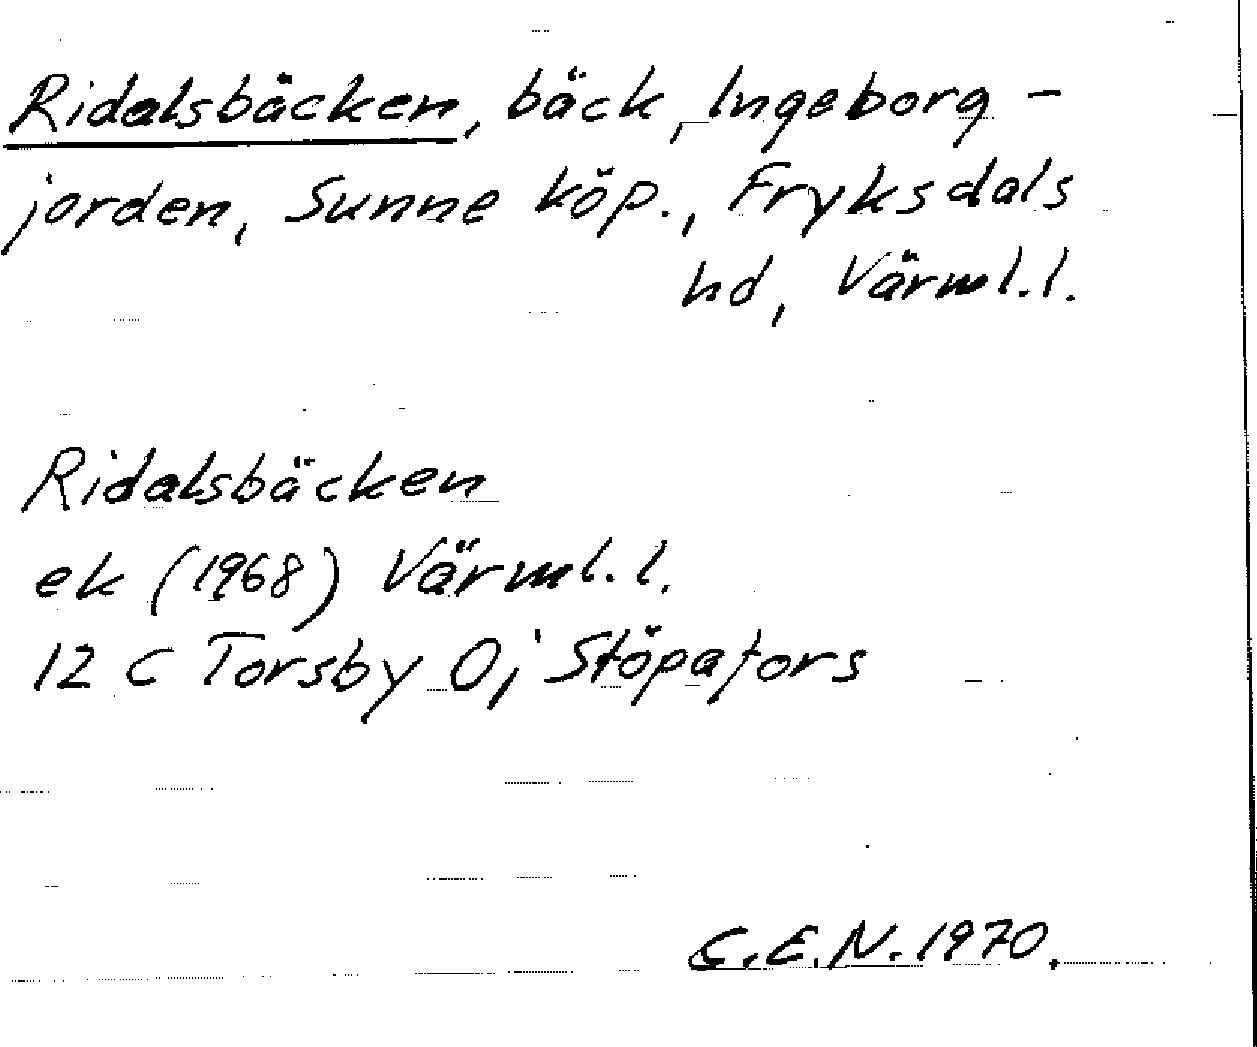 Ridalsbäcken, bäck, Ingeborg-
jorden, Sunne köp., Fryksdals
hd, Värml.l.
Ridalsbäcken
ek (1968) Värml.l.
12 C Torsby O; Stöpafors
C.E.N. 1970.